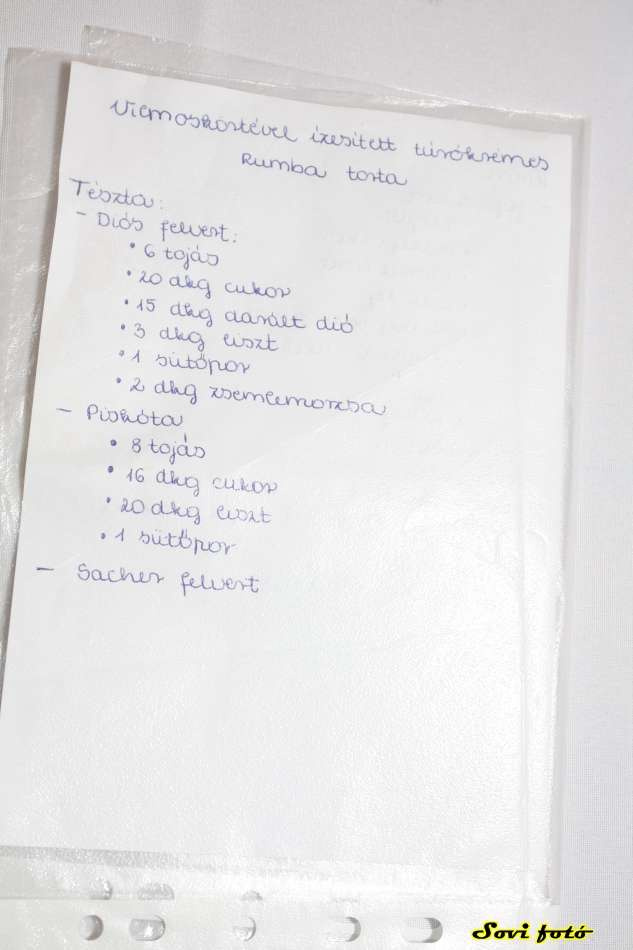 Vilmoskörtével ízesített túrókrémes
Rumba torta
Tészta:
- Diós felvert:
• 6 tojás
• 20 dkg cukor
• 15 dkg darált dió
• 3 dkg liszt
• 1 sütőpor
• 2 dkg zsemlemorzsa
- Piskóta
• 8 tojás
• 16 dkg cukor
• 20 dkg liszt
• 1 sütőpor
- Sacher felvert
Sovi fotó